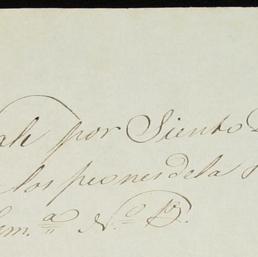 ale por Siento
los peones de la
em.ª N.º 19.